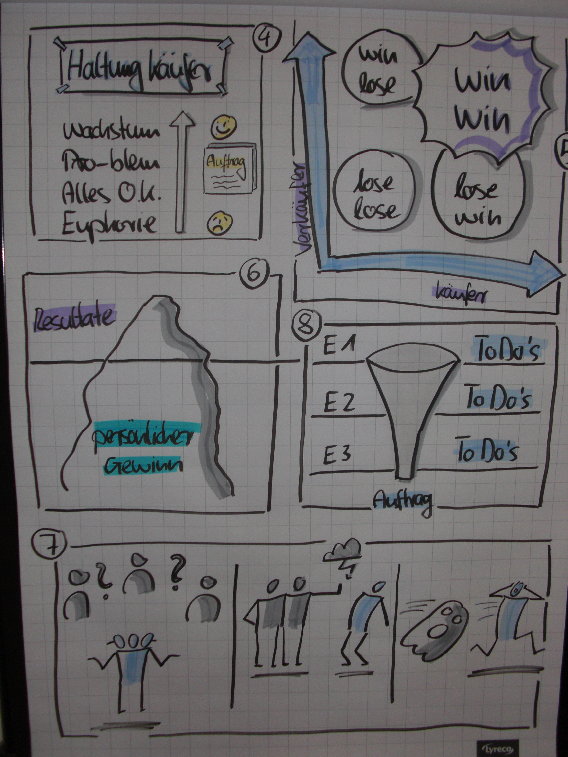 4
Haltung Käufer
Wachstum
Pro-blem
Alles O.K.
Euphorie
Auftrag
5
Verkäufer
win
lose
Win
Win
lose
lose
lose
win
Käufer
6
Resultate
persönlicher
Gewinn
8
E1
ToDo's
E2
To Do's
E3
To Do's
Auftrag
7
? ?
Lyreco